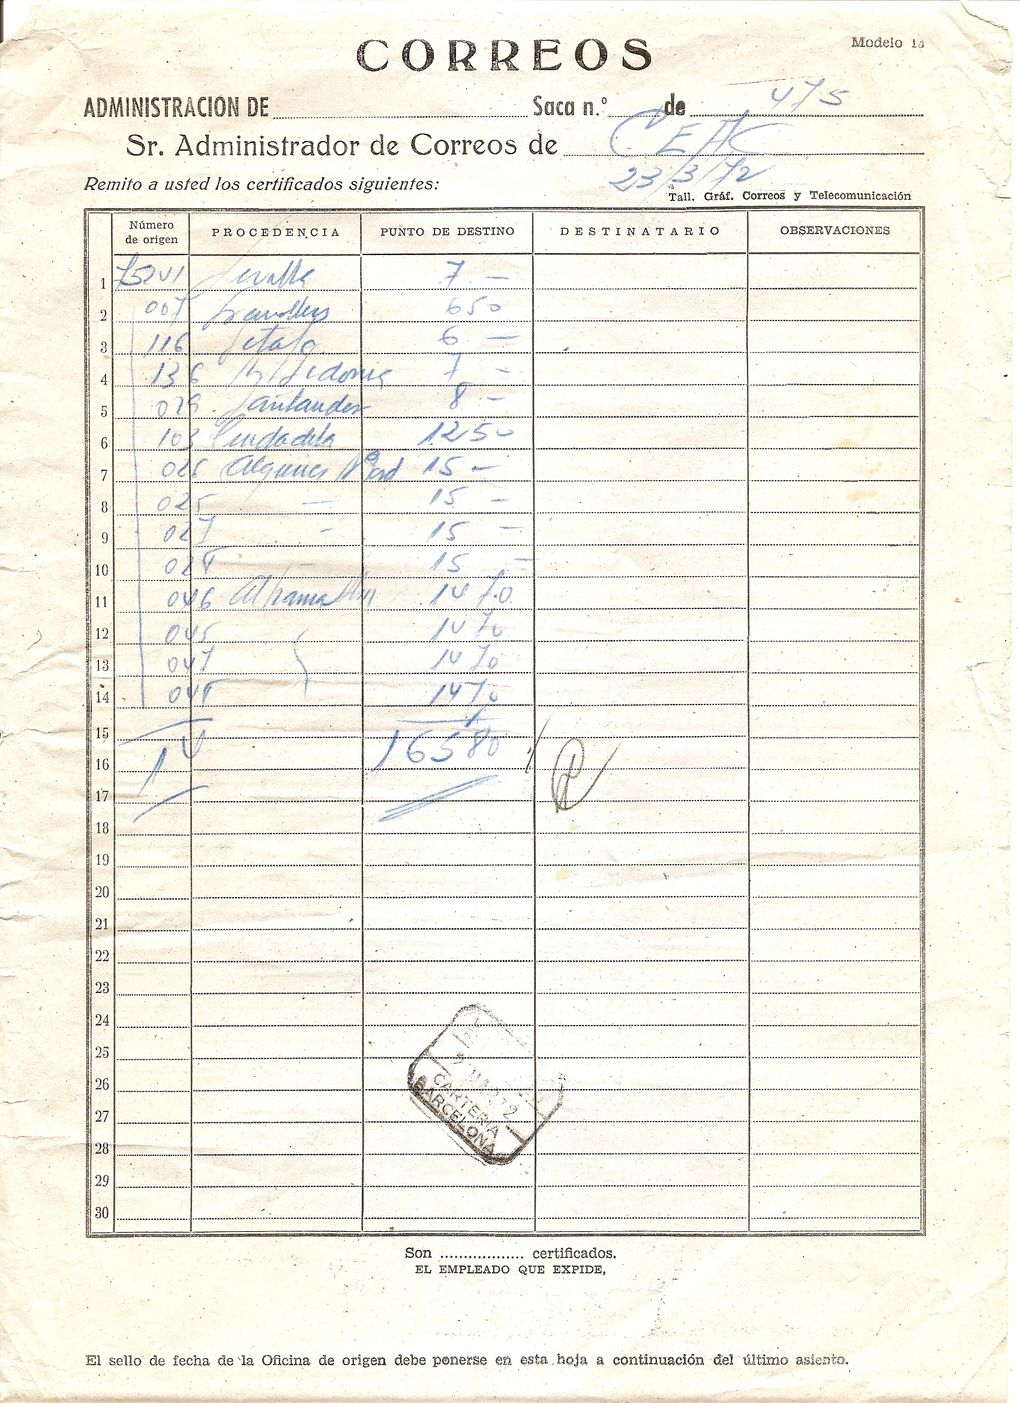 CORREOS
Modelo 13
ADMINISTRACION DE Saca n.º de 475
Sr. Administrador de Correos de CEAC
23/3/72
Remito a usted los certificados siguientes:
Tall. Gráf. Correos y Telecomunicación
Número de origen PROCEDENCIA PUNTO DE DESTINO DESTINATARIO OBSERVACIONES
1 Sevilla 7 —
2 007 650
3 116 Getafe 6 —
4 136 M Sidonia 7 -
5 079 Santander 8 -
6 103 Ciudadela 1250
7 026 15 —
8 025 — 15 —
9 027 - 15 —
10 028 - 15 —
11 046 Alhama 1470
12 045 1470
13 047 1470
14 048 1470
15
16 14 16580
17
18
19
20
21
22
23
24
25
26
27
28
29
30
MAR 72
CARTERIA
BARCELONA
Son .................. certificados.
EL EMPLEADO QUE EXPIDE,
El sello de fecha de la Oficina de origen debe ponerse en esta hoja a continuación del último asiento.